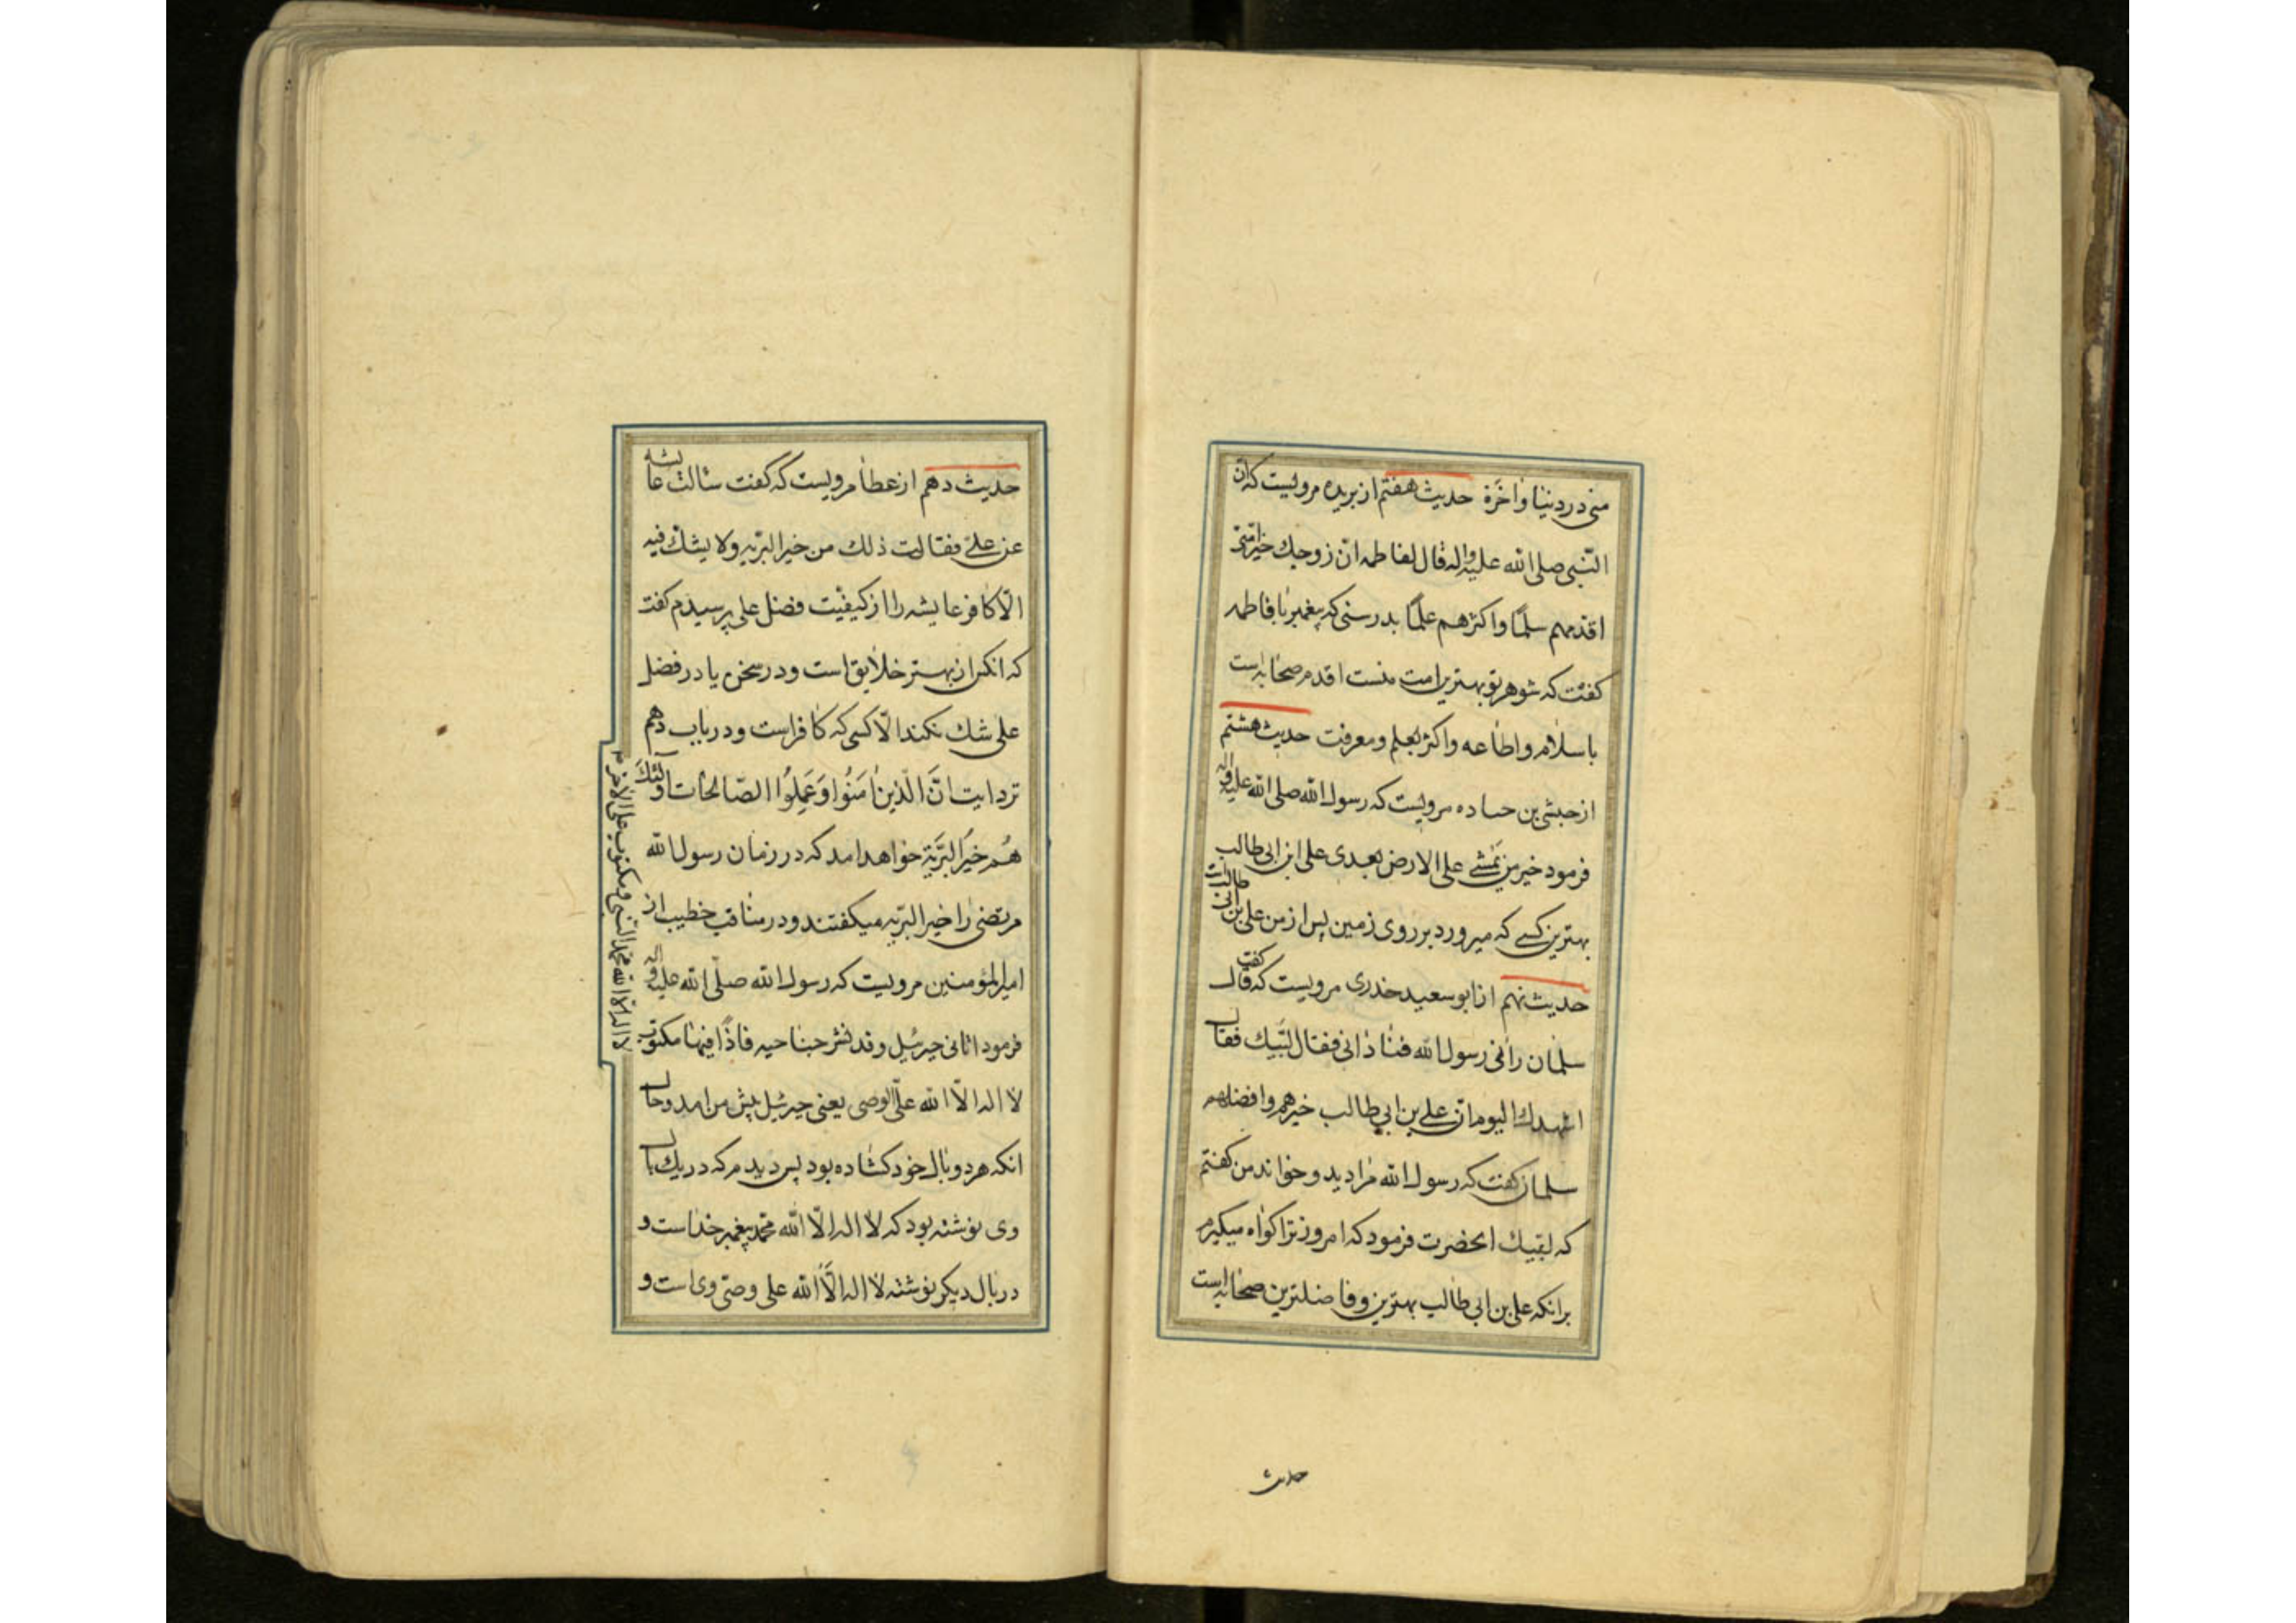 منی در دنیا و اخرة حدیث هفتم از بریده مرویست که ان
النبی صلی الله علیه واله قال لفاطمه ان زوجك خیر امتی
اقدمهم سلمًا واکثرهم علمًا بدرستی که پیغمبر با فاطمه
کفت که شوهر تو بهترین امت منست اقدم صحابه است
باسلام واطاعه واکثر بعلم ومعرفت حدیث هشتم
از حبشی بن جناده مرویست که رسول الله صلی الله علیه واله
فرمود خیر من یمشی علی الارض بعدی علی ابن ابی طالب
بهترین کسی که میرود بر روی زمین پس از من علی بن ابی طالبست
حدیث نهم از ابو سعید خدری مرویست که کفت قال
سلمان رانی رسول الله فنادانی فقال لبیك فقال
اشهدك الیوم ان علی بن ابی طالب خیرهم وافضلهم
سلمان کفت که رسول الله مرا دید و خواند من کفتم
که لبیك انحضرت فرمود که امروز ترا کواه میکیرم
برانکه علی بن ابی طالب بهترین و فاضلترین صحابه است
حدیث
حدیث دهم از عطا مرویست که کفت سالت عایشه
عن علی فقالت ذلك من خیر البریه ولا یشك فیه
الّا کافر عایشه را از کیفیت فضل علی پرسیدم کفت
که انکس از بهتر خلایق است ودر سخن یا در فضل
علی شك نکند الّا کسی که کافر است ودر باب دهم
نزد ایت انَّ الَّذینَ امَنُوا وَعَمِلُوا الصّالحات اولئكَ
هُم خَیرُ البَرِّیَة خواهد امد که در زمان رسول الله
مرتضی را خیر البریه میکفتند ودر مناقب خطیب از
امیر المؤمنین مرویست که رسول الله صلّی الله علیه واله
فرمود اتانی جبرئیل وقد نشر جناحیه فاذا فیها مکتوب
لا اله الّا الله محمد النبی ومکتوب علی الاخری
لا اله الّا الله علیّ الوصی یعنی جبرئیل پیش من امد وحال
انکه هر دو بال خود کشاده بود پس دیدم که در یك بال
وی نوشته بود که لا اله الّا الله محمّد پیغمبر خداست و
در بال دیکر نوشته لا اله الّا الله علی وصیّ وی است و